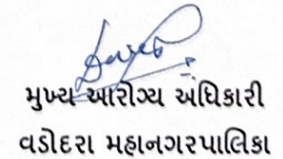 મુખ્ય આરોગ્ય અધિકારી
વડોદરા મહાનગરપાલિકા